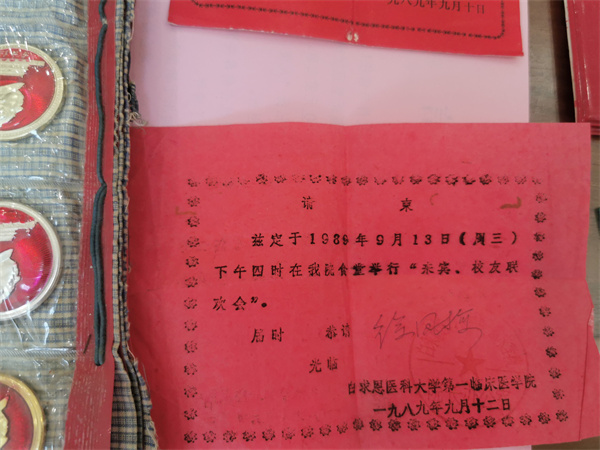 一九八九年九月十日
请柬
兹定于1989年9月13日(周三)
下午四时在我院食堂举行“来宾、校友联
欢会”。
届时 恭请
光临
白求恩医科大学第一临床医学院
一九八九年九月十二日